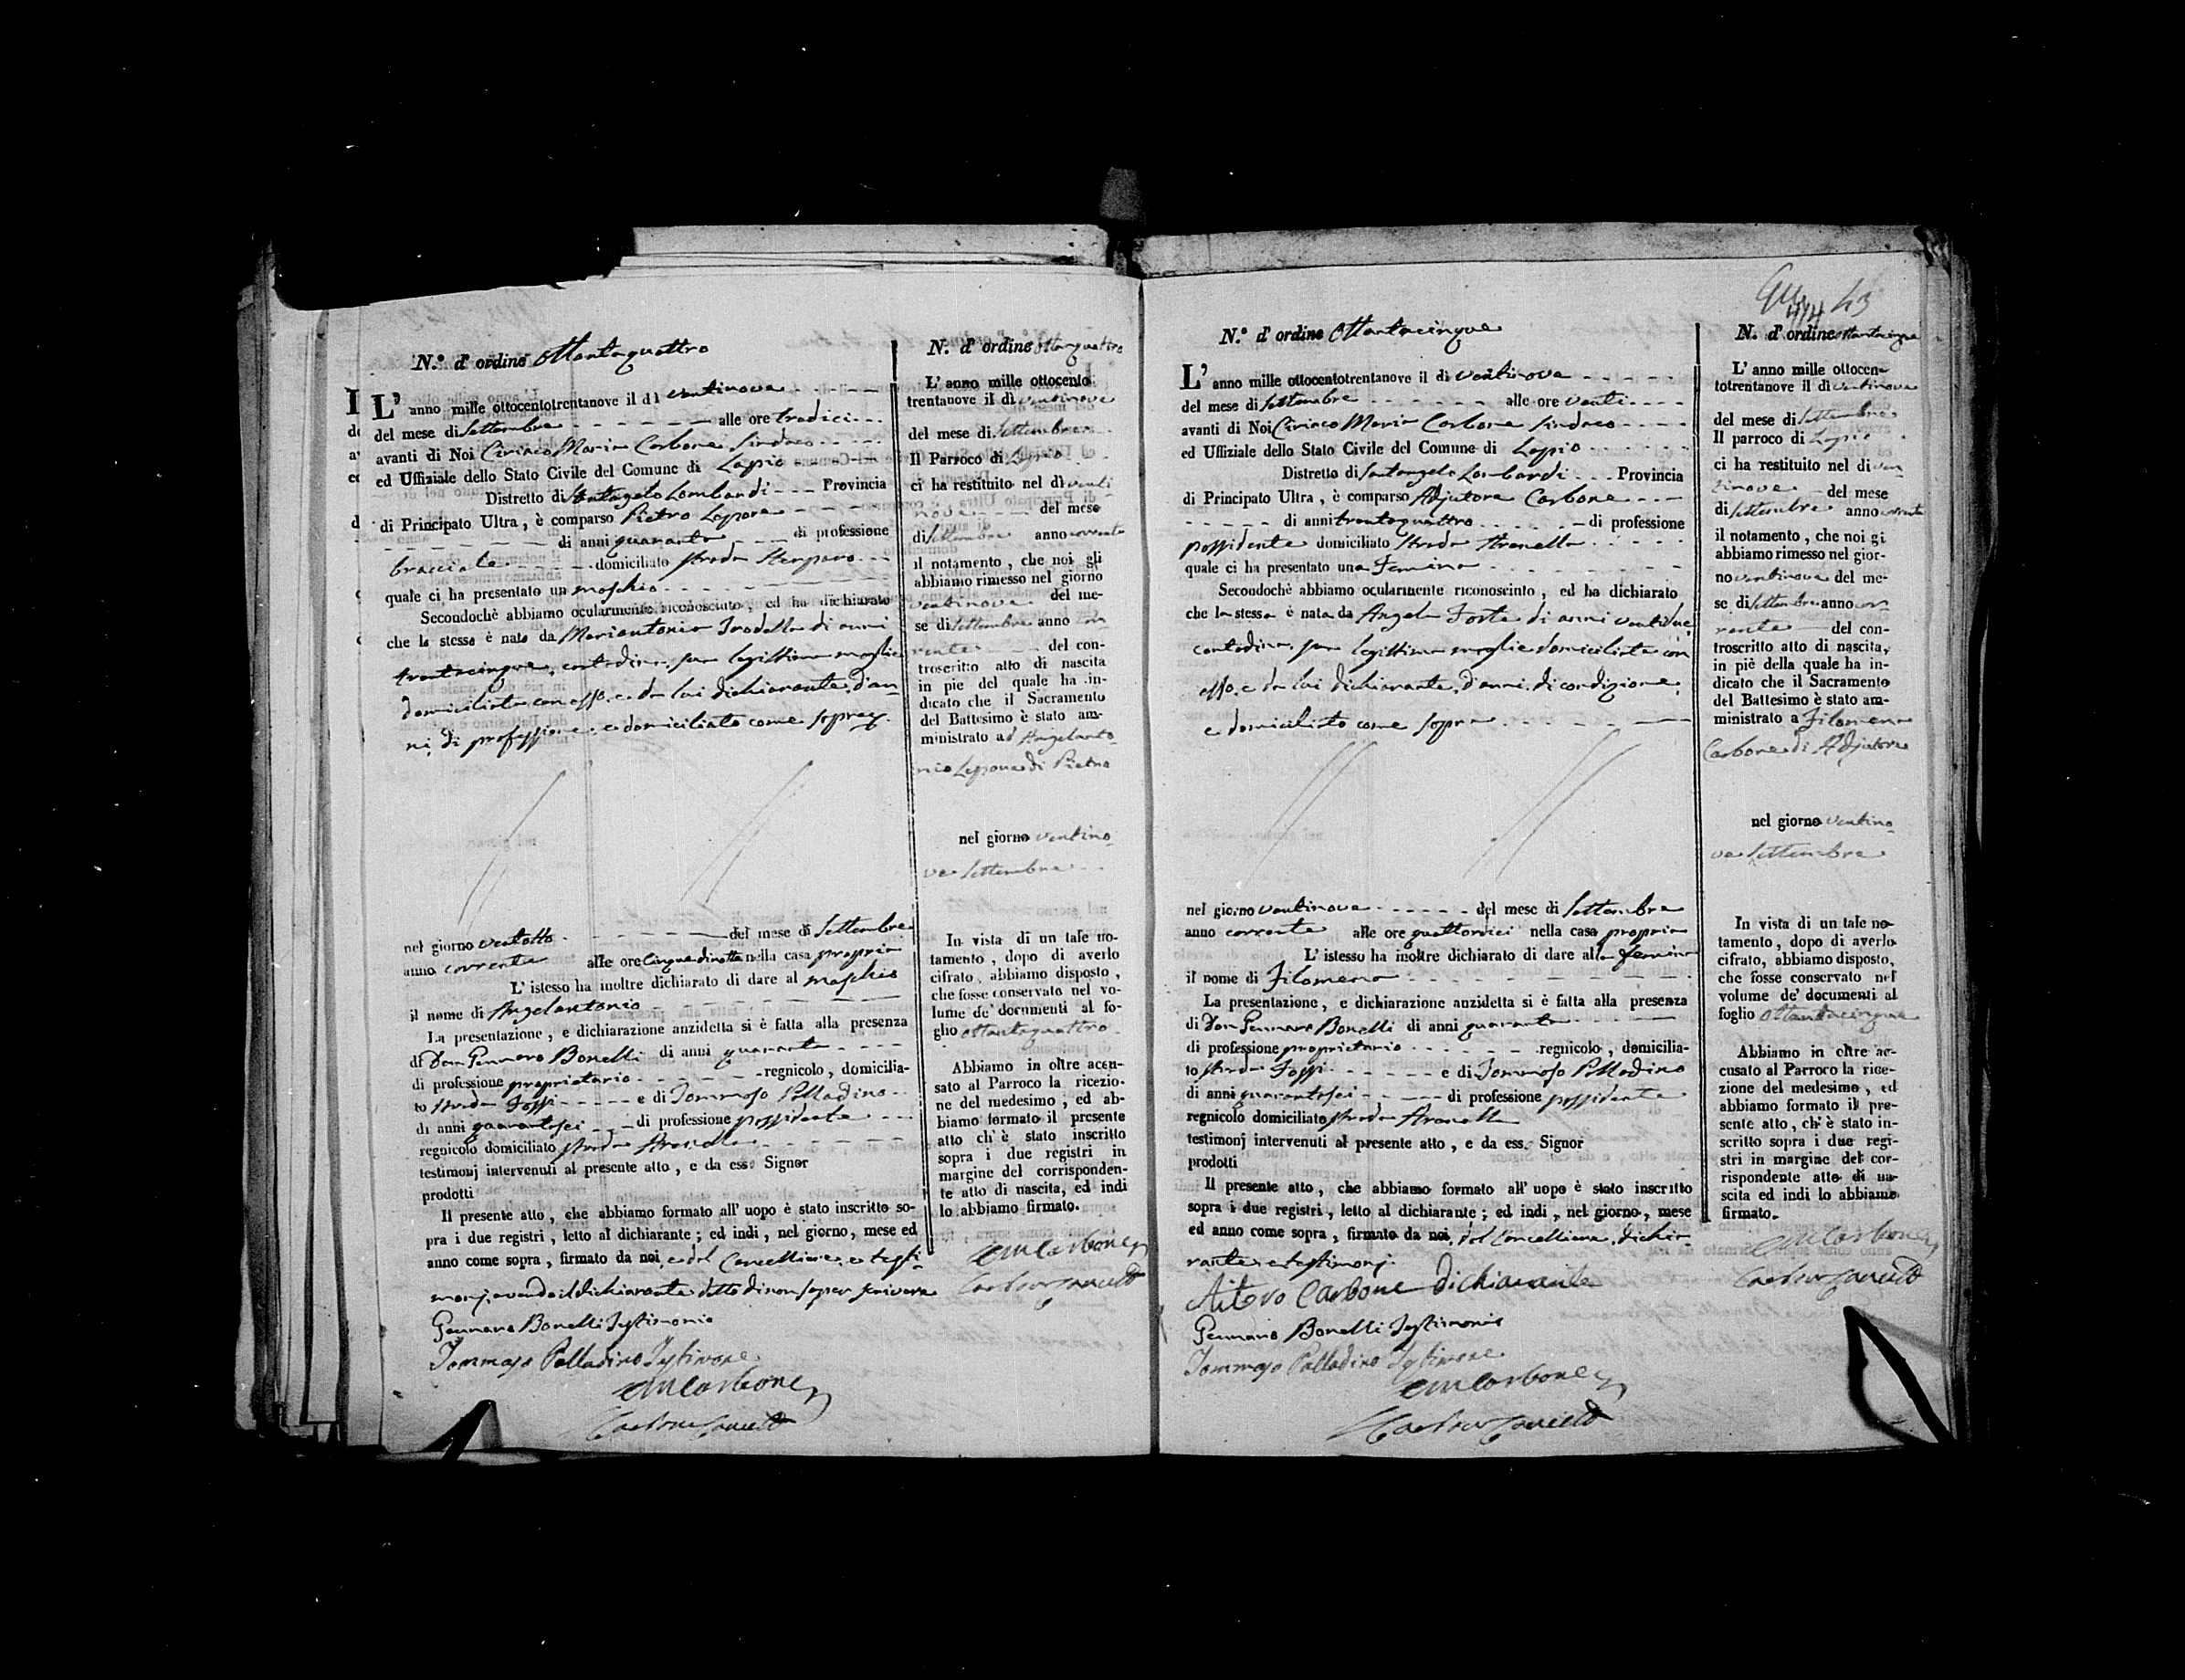 N.º d' ordine Ottantaquattro
L' anno mille ottocentotrentanove il dì ventinove
del mese di Settembre alle ore tredici
avanti di Noi Ciriaco Maria Carbone Sindaco
ed Uffiziale dello Stato Civile del Comune di Lapio
Distretto di Santangelo Lombardi Provincia
di Principato Ultra, è comparso Pietro Lepore
di anni quaranta di professione
bracciale domiciliato strada
quale ci ha presentato un maschio
Secondochè abbiamo ocularmente riconosciuto, ed ha dichiarato
che lo stesso è nato da Mariantonia Irodella di anni
trentacinque, contadina, sua legittima moglie
domiciliata con esso, e da lui dichiarante, d'an-
ni, di professione, e domiciliato come sopra
nel giorno ventotto del mese di Settembre
anno corrente alle ore cinque di notte nella casa propria
L' istesso ha inoltre dichiarato di dare al maschio
il nome di Angelantonio
La presentazione, e dichiarazione anzidetta si è fatta alla presenza
di Don Gennaro Bonelli di anni quaranta
di professione proprietario regnicolo, domicilia-
to strada Fossi e di Tommaso Palladino
di anni quarantasei di professione possidente
regnicolo domiciliato strada Aranella
testimonj intervenuti al presente atto, e da ess. Signor
prodotti
Il presente atto, che abbiamo formato all' uopo è stato inscritto so-
pra i due registri, letto al dichiarante; ed indi, nel giorno, mese ed
anno come sopra, firmato da noi, e dal Cancelliere, e testi-
monj, avendo il dichiarante detto di non saper scrivere
Gennaro Bonelli Testimonio
Tommaso Palladino Testimone
CMCarbone
N. d' ordine ottanquattro
L' anno mille ottocento
trentanove il dì ventinove
del mese di Settembre
Il Parroco di Lapio
ci ha restituito nel dì venti
nove del mese
di Settembre anno corrente
il notamento, che noi gli
abbiamo rimesso nel giorno
ventinove del me-
se di Settembre anno cor
rente del con-
troscritto atto di nascita
in piè del quale ha in-
dicato che il Sacramento
del Battesimo è stato am-
ministrato ad Angelanto-
nio Lepore di Pietro
nel giorno ventino-
ve Settembre
In vista di un tale no-
tamento, dopo di averlo
cifrato, abbiamo disposto,
che fosse conservato nel vo-
lume de' documenti al fo-
glio ottantaquattro
Abbiamo in oltre accu-
sato al Parroco la ricezio-
ne del medesimo, ed ab-
biamo formato il presente
atto ch' è stato inscritto
sopra i due registri in
margine del corrisponden-
te atto di nascita, ed indi
lo abbiamo firmato.
CMCarbone
44 43
N.º d' ordine Ottantacinque
L' anno mille ottocentotrentanove il dì ventinove
del mese di Settembre alle ore venti
avanti di Noi Ciriaco Maria Carbone Sindaco
ed Uffiziale dello Stato Civile del Comune di Lapio
Distretto di Santangelo Lombardi Provincia
di Principato Ultra, è comparso Adjutore Carbone
di anni trentaquattro di professione
possidente domiciliato Strada Aranella
quale ci ha presentato una Femina
Secondochè abbiamo ocularmente riconosciuto, ed ha dichiarato
che la stessa è nata da Angela Forte di anni ventidue,
contadina, sua legittima moglie domiciliata con
esso, e da lui dichiarante, d'anni, di condizione,
e domiciliato come sopra
nel giorno ventinove del mese di Settembre
anno corrente alle ore quattordici nella casa propria
L' istesso ha inoltre dichiarato di dare alla femina
il nome di Filomena
La presentazione, e dichiarazione anzidetta si è fatta alla presenza
di Don Gennaro Bonelli di anni quaranta
di professione proprietario regnicolo, domicilia-
to strada Fossi e di Tommaso Palladino
di anni quarantasei di professione possidente
regnicolo domiciliato strada Aranella
testimonj intervenuti al presente atto, e da ess. Signor
prodotti
Il presente atto, che abbiamo formato all' uopo è stato inscritto
sopra i due registri, letto al dichiarante; ed indi, nel giorno, mese
ed anno come sopra, firmato da noi, dal Cancelliere, dichia-
rante, e testimonj.
Aitoro Carbone dichiarante
Gennaro Bonelli Testimonio
Tommaso Palladino Testimone
CMCarbone
N. d' ordine ottantacinque
L' anno mille ottocen-
totrentanove il dì ventinove
del mese di Settembre
Il parroco di Lapio
ci ha restituito nel dì ven
tinove del mese
di Settembre anno corrente
il notamento, che noi gi
abbiamo rimesso nel gior-
no ventinove del me-
se di Settembre anno cor-
rente del con-
troscritto atto di nascita,
in piè della quale ha in-
dicato che il Sacramento
del Battesimo è stato am-
ministrato a Filomena
Carbone di Adjutore
nel giorno ventino-
ve Settembre
In vista di un tale no-
tamento, dopo di averlo
cifrato, abbiamo disposto,
che fosse conservato nel
volume de' documenti al
foglio ottantacinque
Abbiamo in oltre ac-
cusato al Parroco la rice-
zione del medesimo, ed
abbiamo formato il pre-
sente atto, ch' è stato in-
scritto sopra i due regi-
stri in margine del cor-
rispondente atto di na-
scita ed indi lo abbiamo
firmato.
CMCarbone